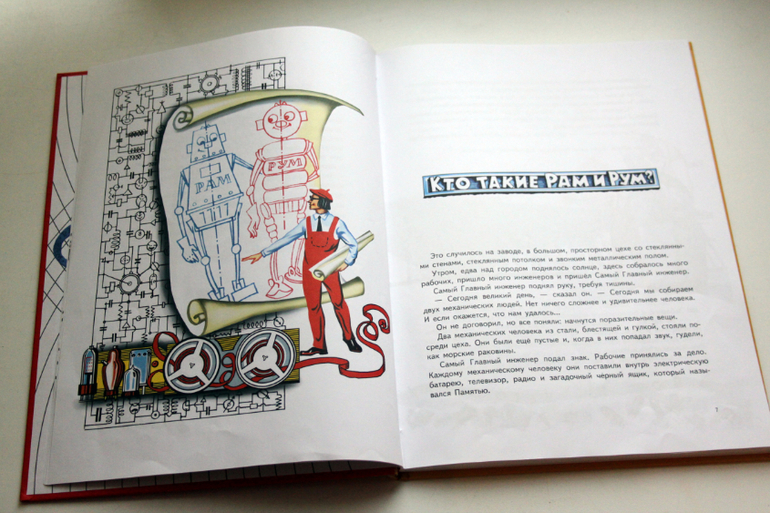 РАМ
РУМ
КТО ТАКИЕ РАМ И РУМ?
Это случилось на заводе, в большом, просторном цехе со стеклянны-
ми стенами, стеклянным потолком и звонким металлическим полом.
Утром, едва над городом поднялось солнце, здесь собралось много
рабочих, пришло много инженеров и пришёл Самый Главный инженер.
Самый Главный инженер поднял руку, требуя тишины.
— Сегодня великий день, — сказал он. — Сегодня мы собираем
двух механических людей. Нет ничего сложнее и удивительнее человека.
И если окажется, что нам удалось...
Он не договорил, но все поняли: начнутся поразительные вещи.
Два механических человека из стали, блестящей и гулкой, стояли по-
среди цеха. Они были ещё пустые и, когда в них попадал звук, гудели,
как морские раковины.
Самый Главный инженер подал знак. Рабочие принялись за дело.
Каждому механическому человеку они поставили внутрь электрическую
батарею, телевизор, радио и загадочный черный ящик, который назы-
вался Памятью.
7